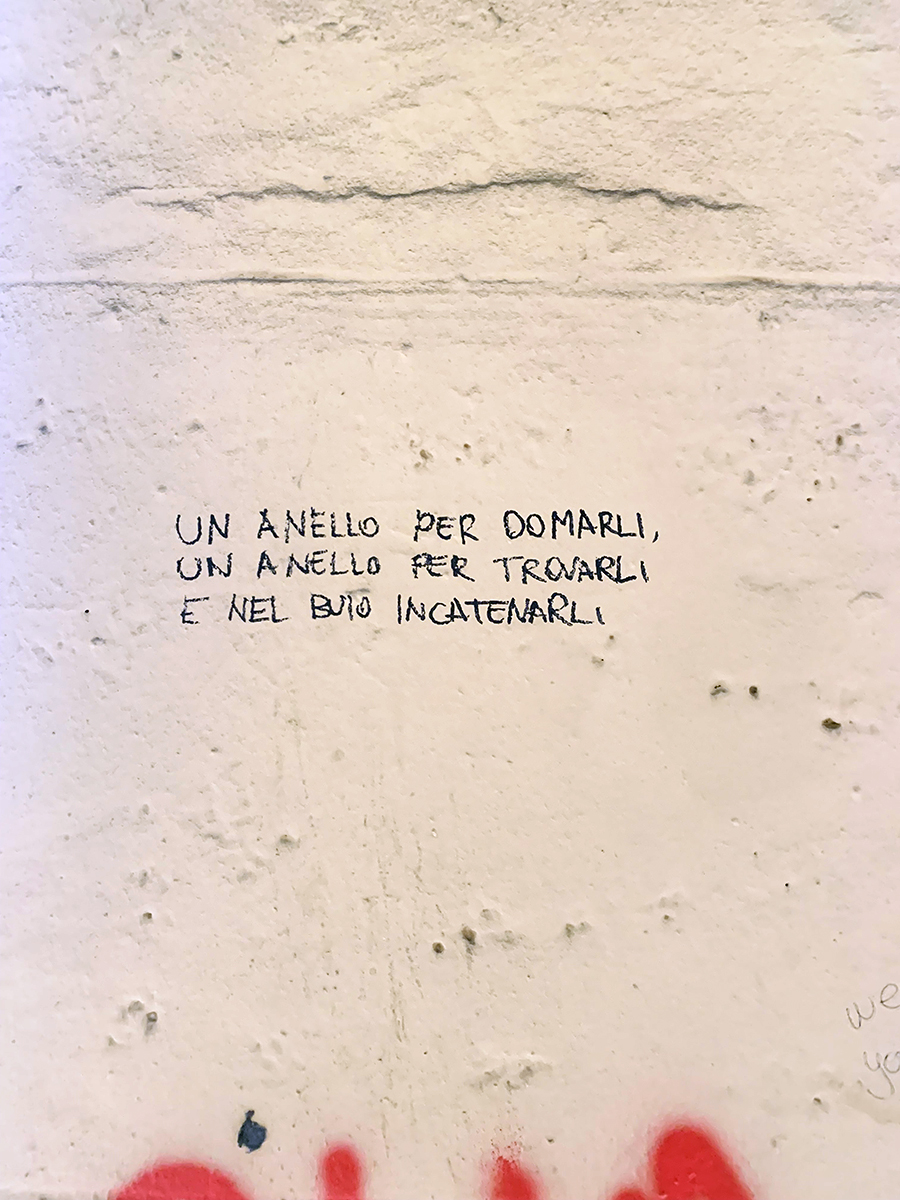 UN ANELLO PER DOMARLI,
UN ANELLO PER TROVARLI
E NEL BUIO INCATENARLI
we
yo